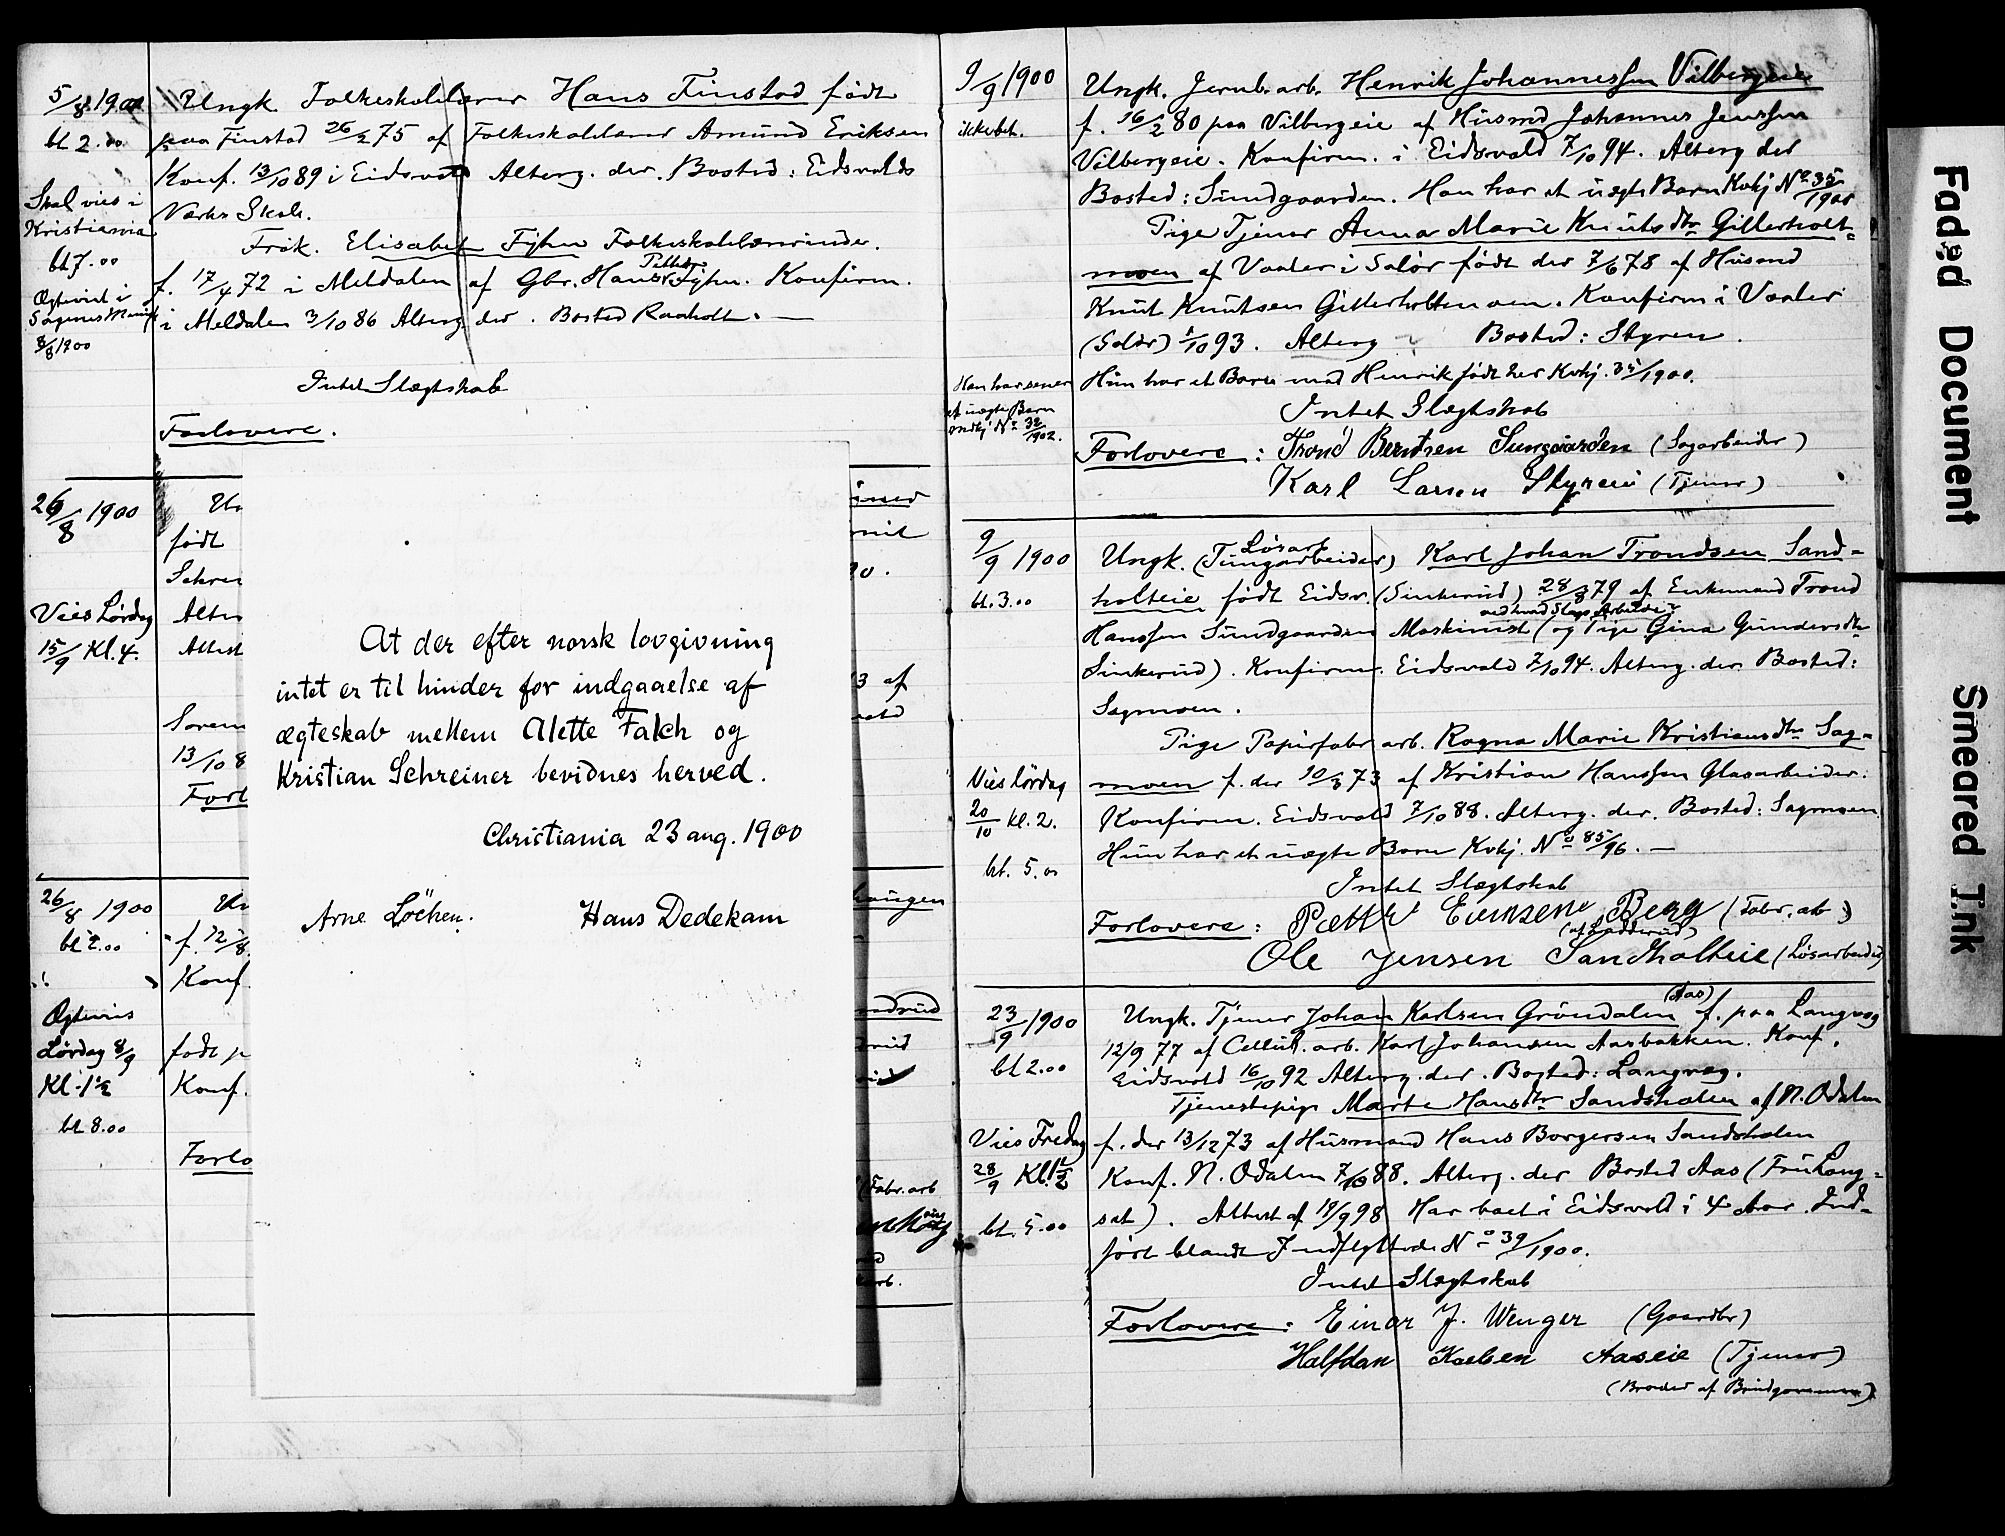 5/8 1900
bt 2.00
Skal vies i
Kristiania
bt 7.00
Ægteviet i
Sagenes Menigh
8/8 1900
Ungk Folkeskolelærer Hans Finstad født
paa Finstad 26/2 75 af Folkeskolelærer Amund Eriksen
Konf. 13/10 89 i Eidsvold Alterg. der. Bosted: Eidsvolds
Værks Skole.
Frøk. Elisabet Fyhn Folkeskolelærerinde.
f. 17/4 72 i Meldalen af Gbr. Hans Petter Fyhn. Konfirm.
i Meldalen 3/10 86 Alterg der. Bosted Raaholt. —
Intet Slægtskab
Forlovere.
26/8 1900
Vies Lørdag
15/9 Kl. 4.
født
Schrei
Alter
Attest
Sorens
13/10 8
Forl
3 af
26/8 1900
bt 2.00
Ægtevies
Lørdag 8/9
Kl. 1 1/2
bt 8.00
f. 12/8.
Konf.
født p
Konf.
Forlo
haugen
(Fabr. arb
arb.
At der efter norsk lovgivning
intet er til hinder for indgaaelse af
ægteskab mellem Alette Falch og
Kristian Schreiner bevidnes herved.
Christiania 23 aug. 1900
Arne Löchen. Hans Dedekam
9/9 1900
ikke bet.
Han har senere
et uægte Barn
No 32/1902.
Ungk. Jernb. arb. Henrik Johannessen Vilbergeie
f. 16/2 80 paa Vilbergeie af Husmd Johannes Jenssen
Vilbergeie. Konfirm. i Eidsvold 7/10 94. Alterg der
Bosted: Sundgaarden. Han har et uægte Barn Kvkj No 35/1900
Pige Tjener Anna Marie Knutsdtr Gillerholt=
moen af Vaaler i Solør født der 7/6 78 af Husmd
Knut Knutsen Gillerholtmoen. Konfirm i Vaaler
(Solør) 1/10 93. Alterg Bosted: Styren.
Hun har et Barn med Henrik født her Kvkj. 35/1900.
Intet Slægtskab
Forlovere: Trond Berntsen Sungaarden (Sagarbeider)
Karl Larsen Styreie (Tjener)
9/9 1900
bt. 3.00
Vies lørdag
20/10 kl. 2.
bt. 5.00
Ungk. (Tungarbeider) Løsarb Karl Johan Trondsen Sand=
holteie født Eidsv. (Sinkerud) 28/8 79 af Enkemand Trond
Hanssen Sundgaarden Maskinist (og Pige Gina Gundersdtr
Sinkerud). Konfirm. Eidsvold 7/10 94. Alterg. der Bosted:
Sagmoen.
Pige Papirfabr arb. Ragna Marie Kristiansdtr Sag=
moen f. der 10/3 73 af Kristian Hanssen Glasarbeider.
Konfirm. Eidsvold 7/10 88. Alterg. der. Bosted: Sagmoen
Hun har et uægte Barn Kvkj. No 85/96. —
Intet Slægtskab
Forlovere: Petter Evensen Berg (Fabr. arb)
Ole Jensen Sandholteie (Løsarbeider)
23/9 1900
bt 2.00
Vies Fredag
28/9 Kl. 1 1/2
bt. 5.00
Ungk. Tjener Johan Karlsen Gröndalen (Aas) f. paa Langvag
12/9 77 af Cellul. arb. Karl Johansen Aasbakken. Konf.
Eidsvold 16/10 92 Alterg. der. Bosted: Langvag.
Tjenestepige Marte Hansdtr Sandsholen af N. Odalen
f. der 13/12 73 af Husmand Hans Borgersen Sandsholen
Konf. N. Odalen 7/10 88. Alterg. der Bosted Aas (Fru Lang=
set). Attest af 19/9 98 Har boet i Eidsvold i 4 Aar. Ind=
ført blandt Indflyttede No 39/1900.
Intet Slægtskab
Forlovere: Einar J. Wenger (Gaardbr)
Halfdan Karlsen Aaseie (Tjener)
(Broder af Brudgommen)
Faded Document
Smeared Ink